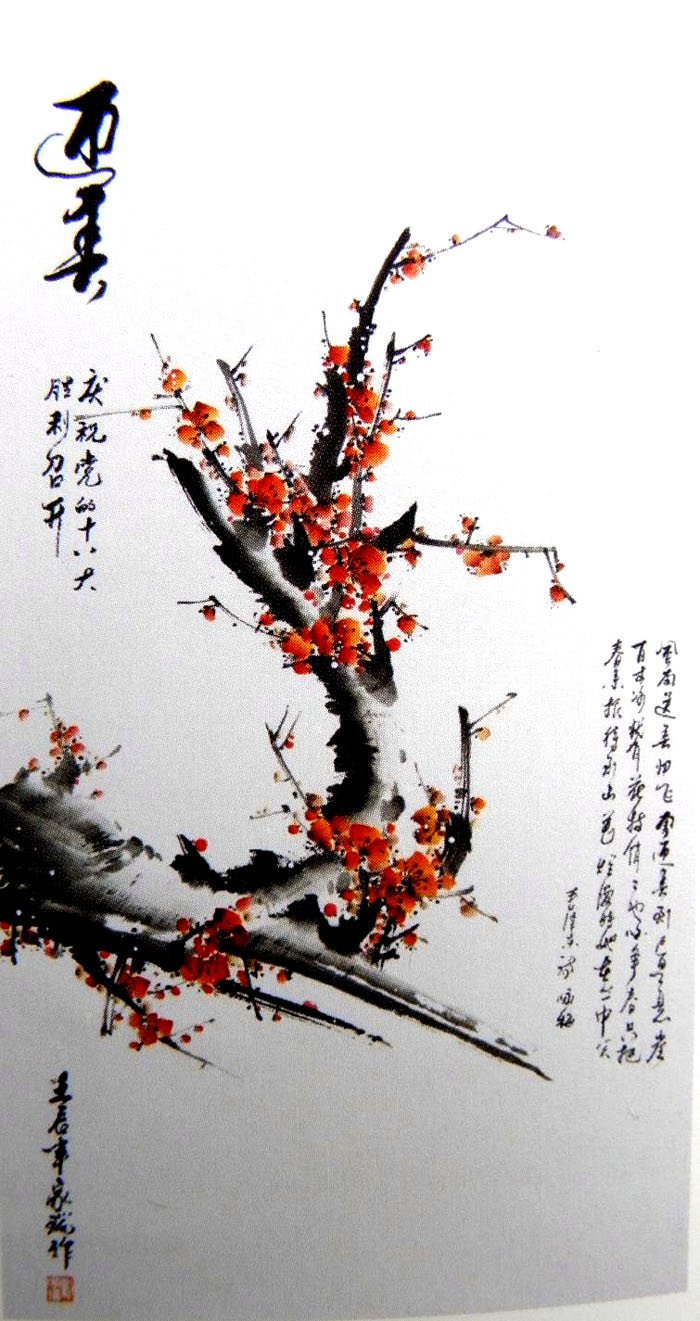 风雨送春归飞雪迎春到已是悬崖
百丈冰犹有花枝俏々也不争春只把
春来报待到山花烂漫时她在丛中笑
毛泽东词咏梅
迎春
庆祝党的十八大
胜利召开